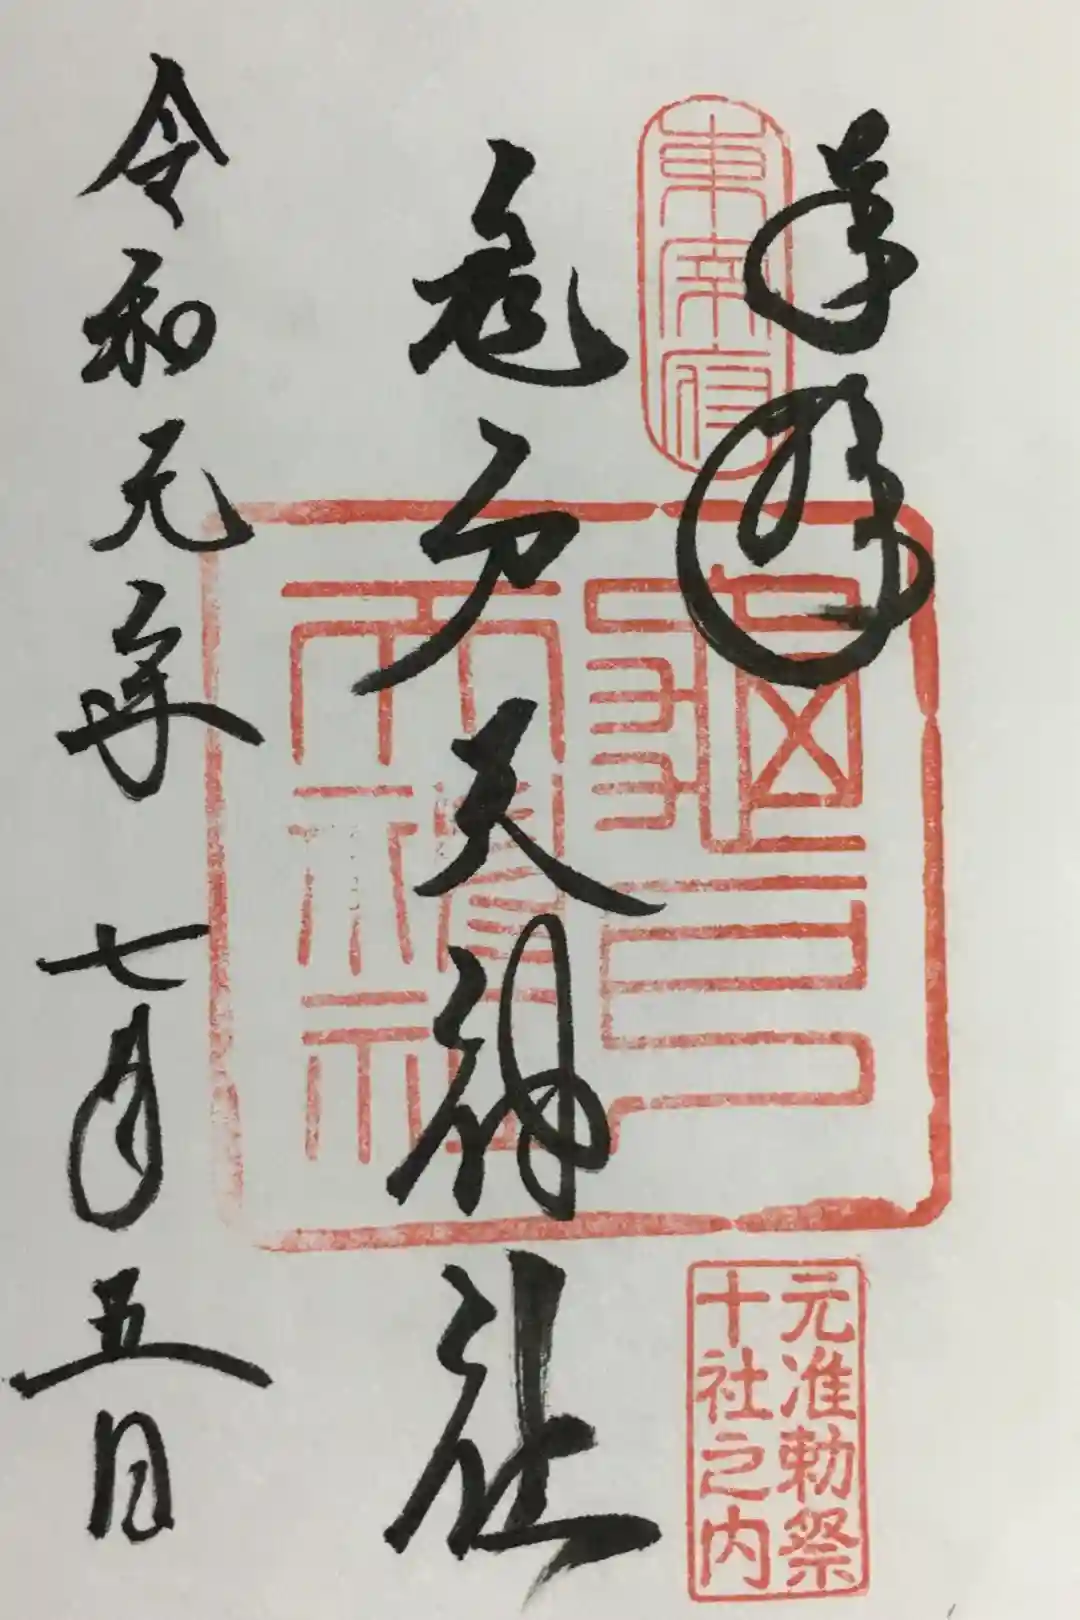 奉拝
東宰府
亀戸天神社
亀戸天神社
元准勅祭
十社之内
令和元年七月五日